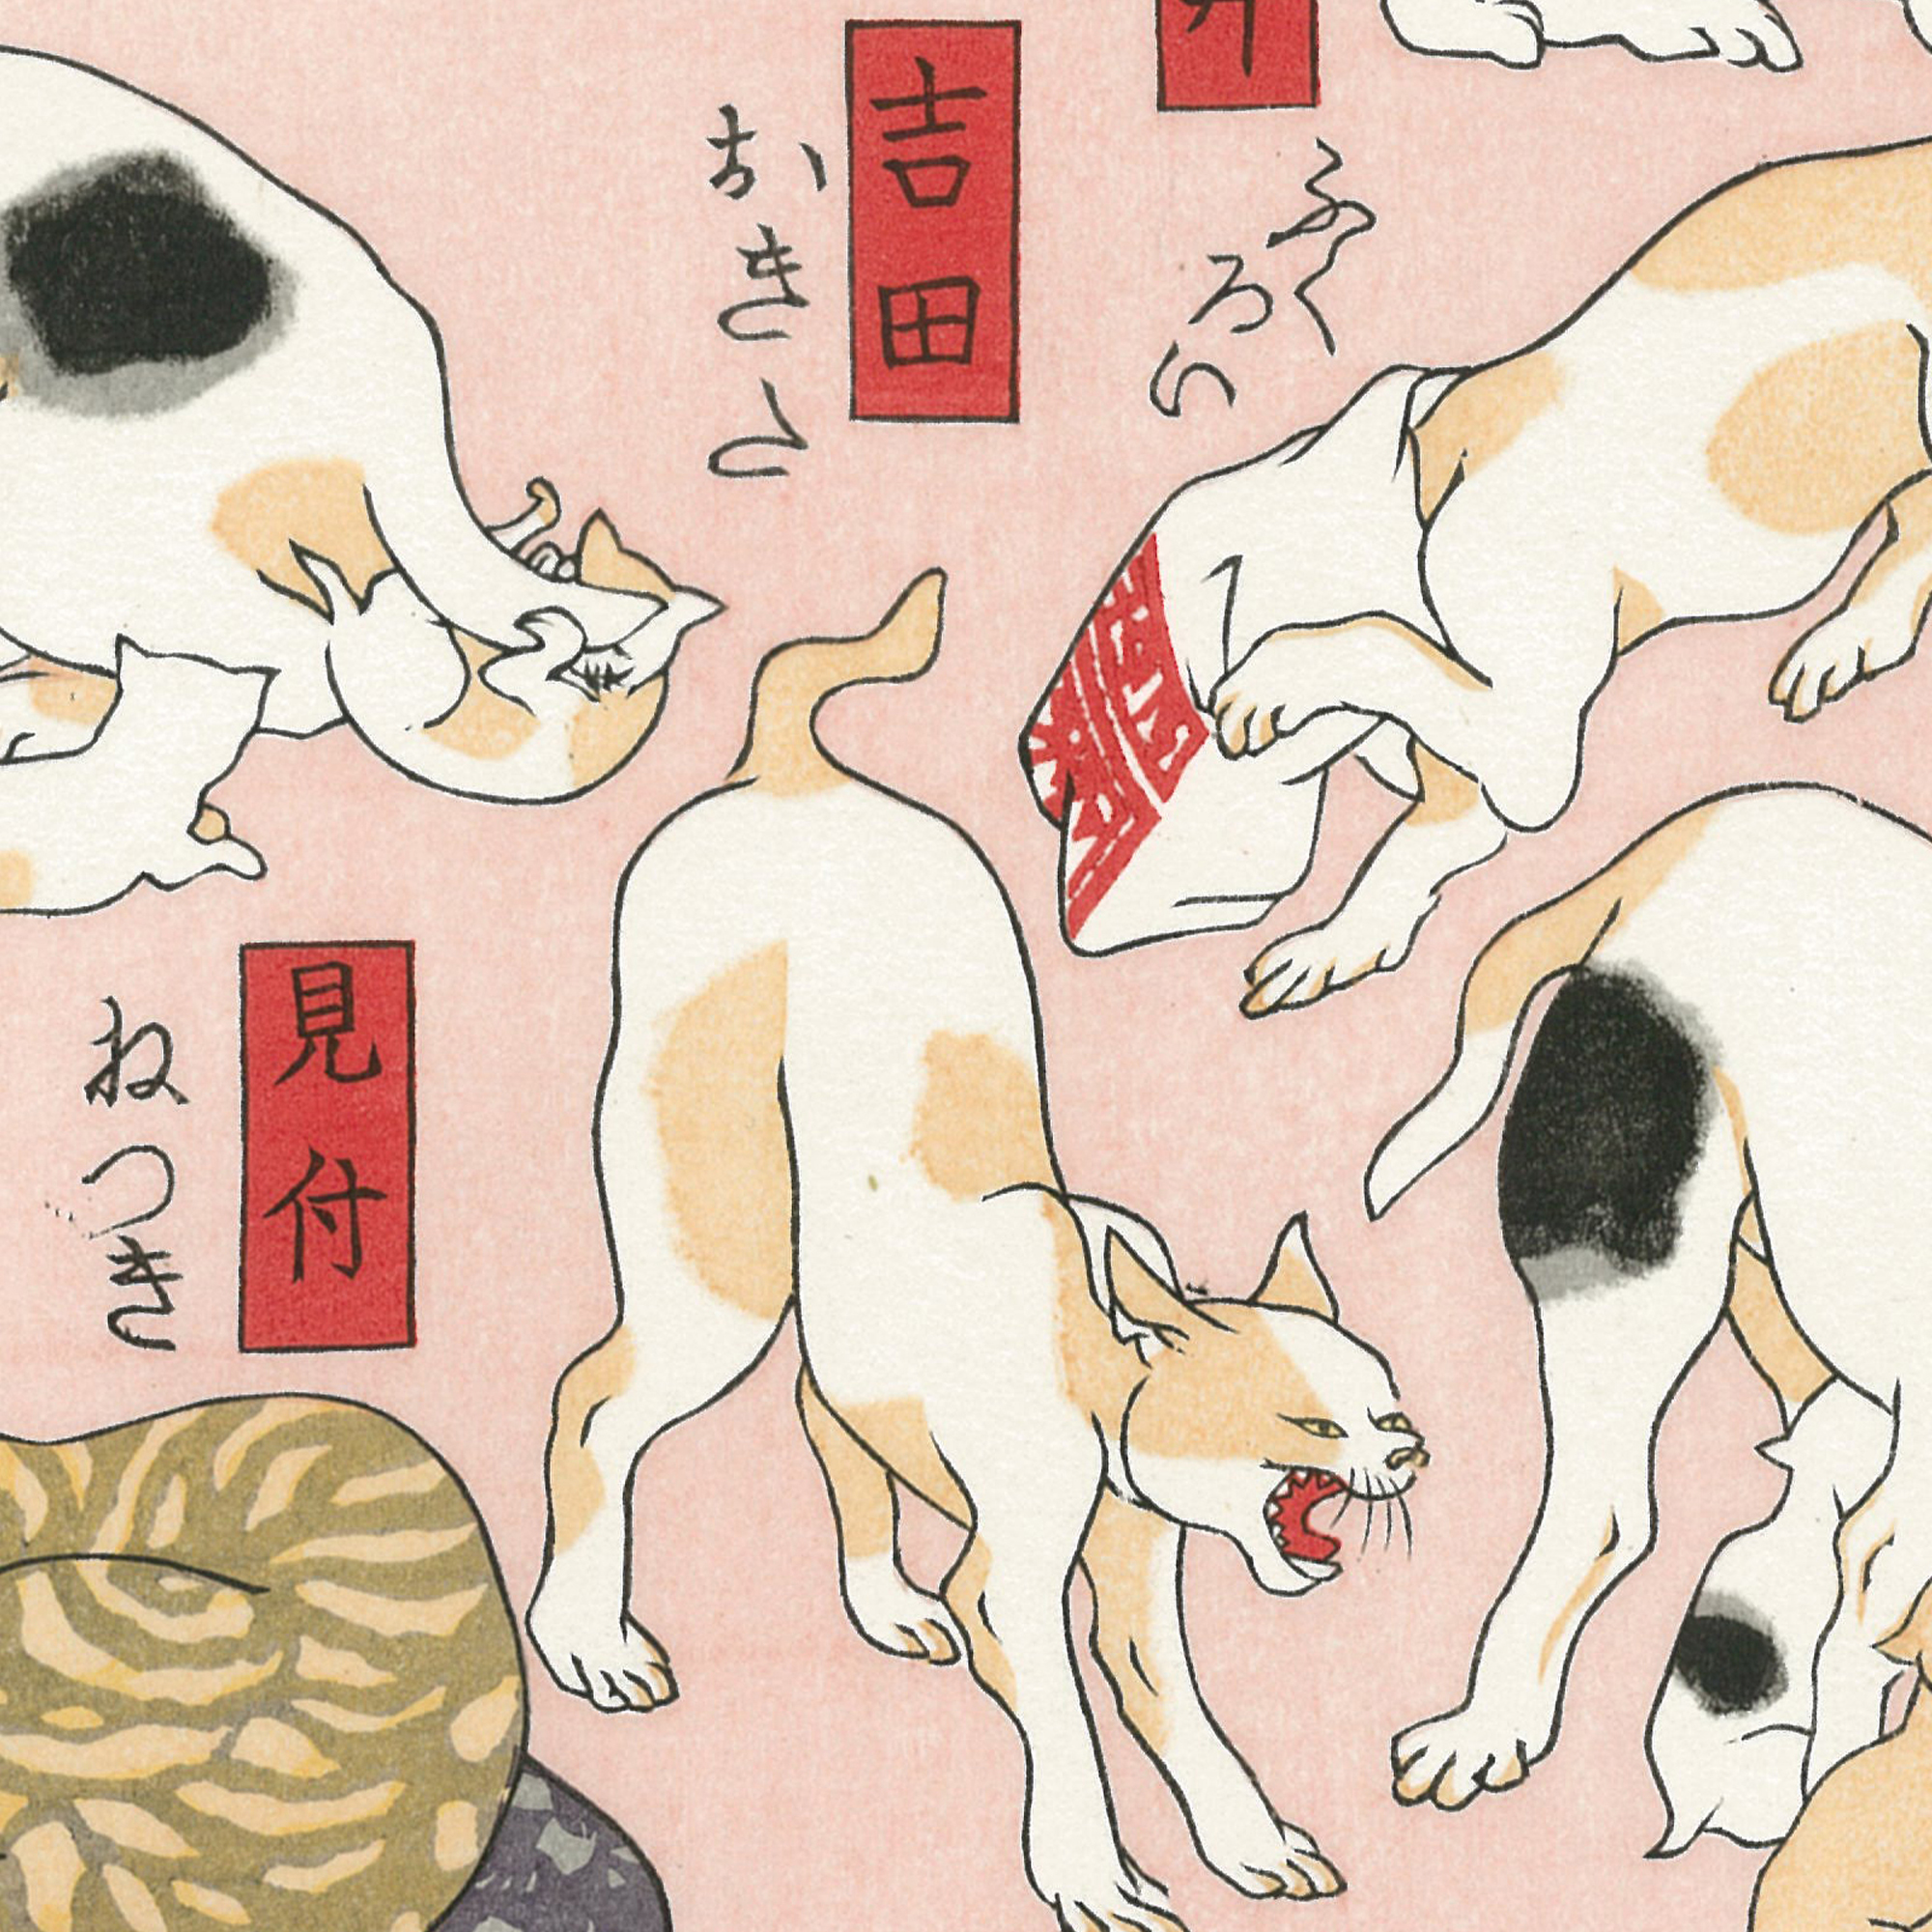 井
ふくろい
吉田
おきた
見付
ねつき